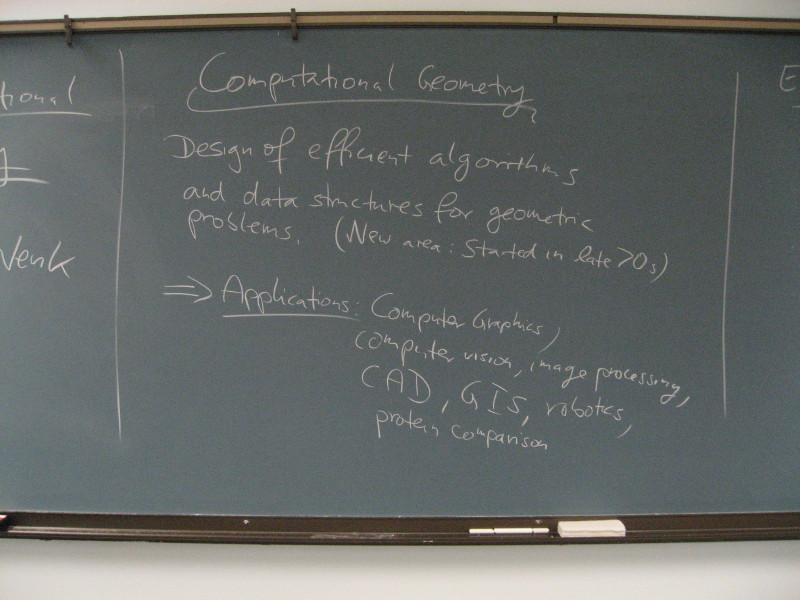 tional
Venk
Computational Geometry
Design of efficient algorithms
and data structures for geometric
problems. (New area: Started in late 70s)
⇒ Applications: Computer Graphics,
computer vision, image processing,
CAD, GIS, robotics,
protein comparison
E